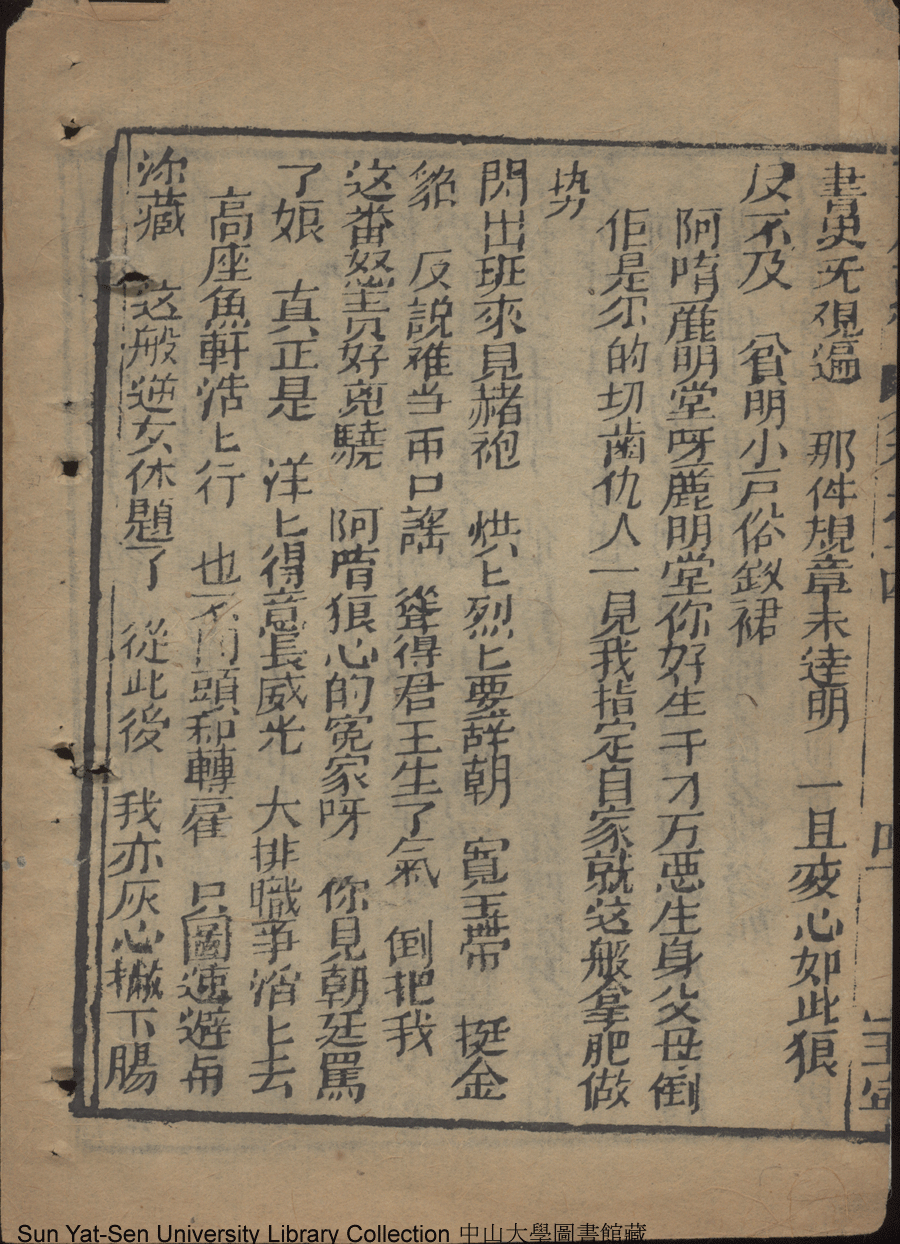 書史无視遍 那件規章未達明 一旦变心如此狠
反不及 貧明小戸俗釵裙
阿唷鹿明堂呀鹿明堂你好生千刁万恶生身父母倒
佢是你的切歯仇人一見我指定自家就这般拿肥做
势
閃出班來見赭袍 烘上烈上要辞朝 寛玉帯 挺金
貂 反説雅当再口謡 聳得君王生了氣 倒把我
这畨怒責好兎驍 阿唷狠心的冤家呀 你見朝廷罵
了娘 真正是 洋上得意長威光 大排職事滔上去
高座魚軒浩上行 也不囬頭和轉雇 只圖速避帛
深藏 这般逆女休題了 從此後 我亦灰心撇下腸
Sun Yat-Sen University Library Collection 中山大學圖書館藏